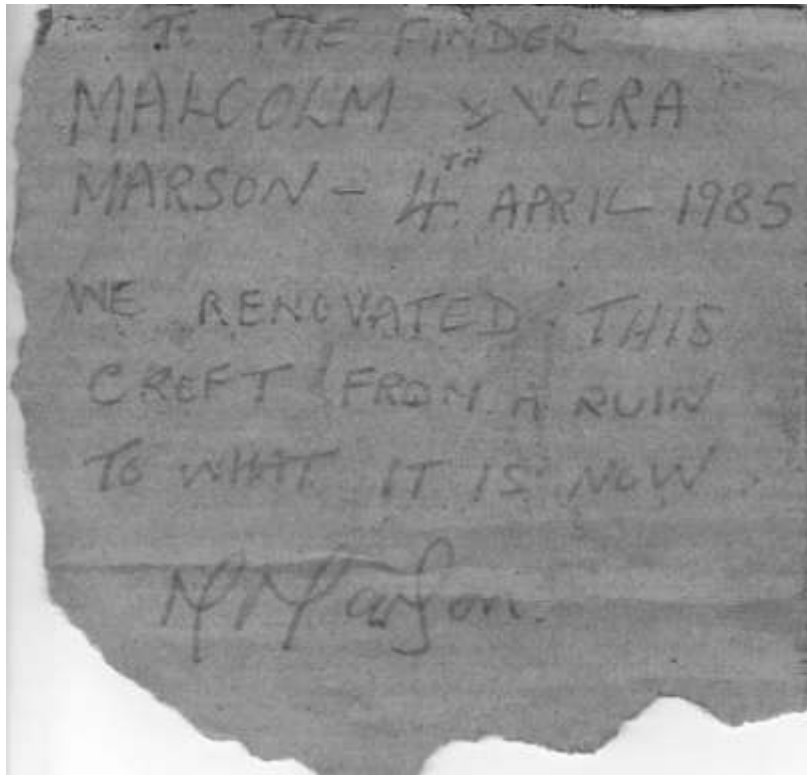 To THE FINDER
MALCOLM & VERA
MARSON - 4TH APRIL 1985
WE RENOVATED THIS
CROFT FROM A RUIN
TO WHAT IT IS NOW.
M Marson.